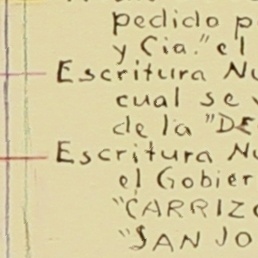 pedido p
y Cia." el
Escritura Nu
cual se v
de la "DE
Escritura Nu
el Gobier
"CARRIZO
"SAN JO